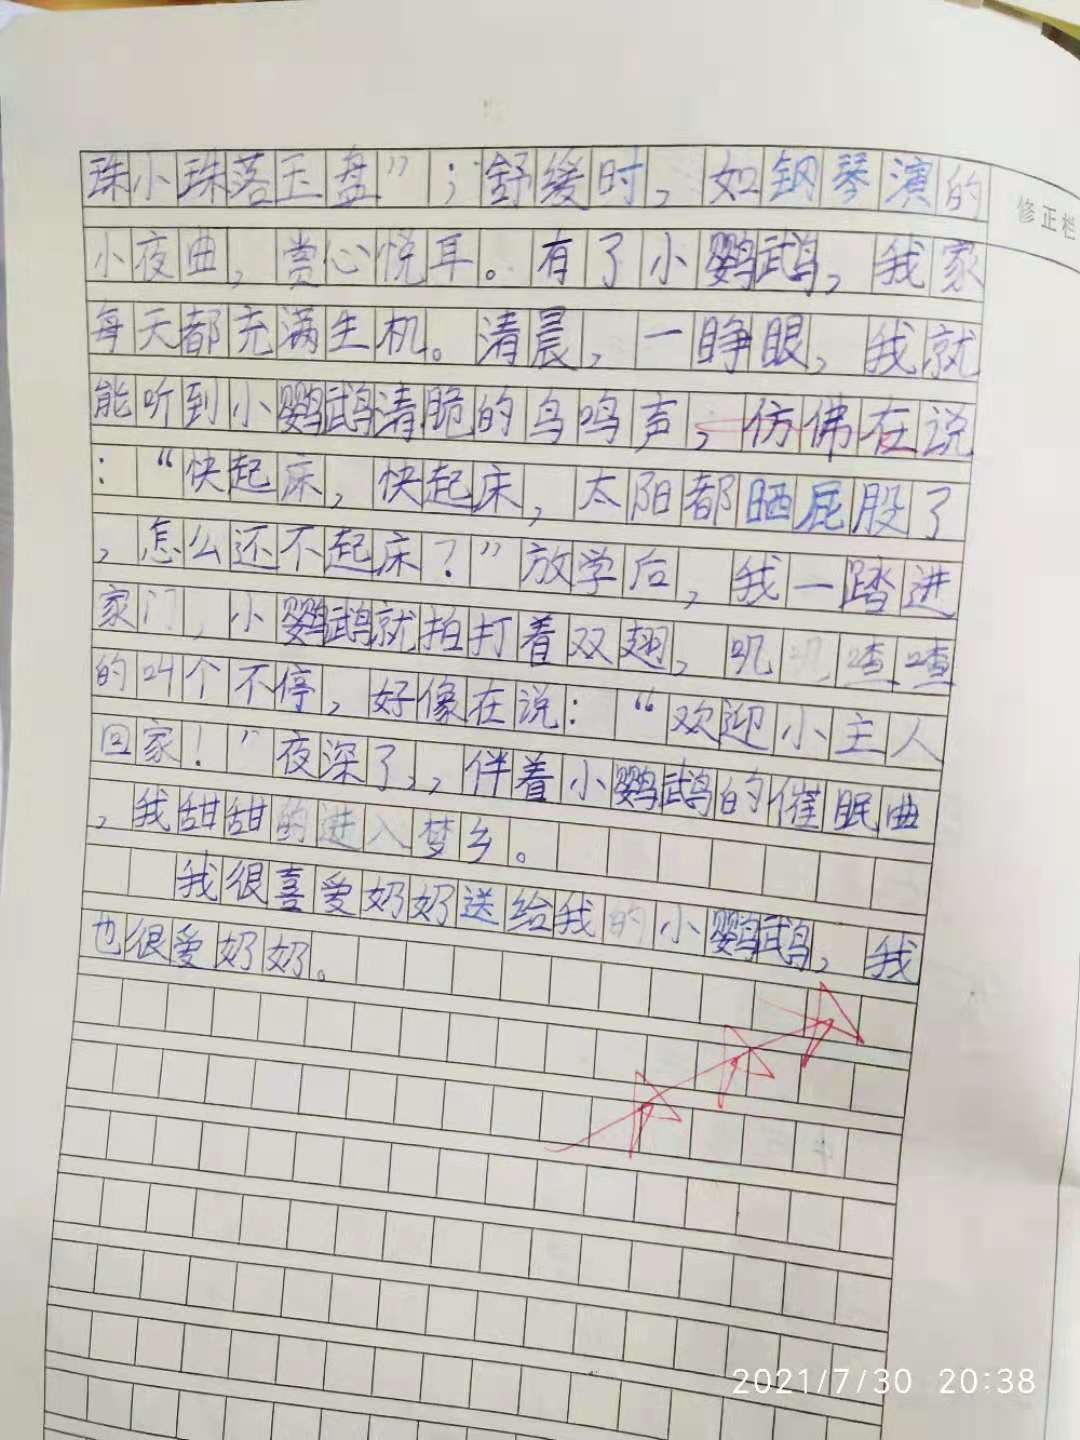 珠小珠落玉盘”；舒缓时，如钢琴演的
修正栏
小夜曲，赏心悦耳。有了小鹦鹉，我家
每天都充满生机。清晨，一睁眼，我就
能听到小鹦鹉清脆的鸟鸣声，仿佛在说
：“快起床，快起床，太阳都晒屁股了
，怎么还不起床？”放学后，我一踏进
家门，小鹦鹉就拍打着双翅，叽叽喳喳
的叫个不停，好像在说：“欢迎小主人
回家！”夜深了，伴着小鹦鹉的催眠曲
，我甜甜的进入梦乡。
我很喜爱奶奶送给我的小鹦鹉，我
也很爱奶奶。
2021/7/30 20:38